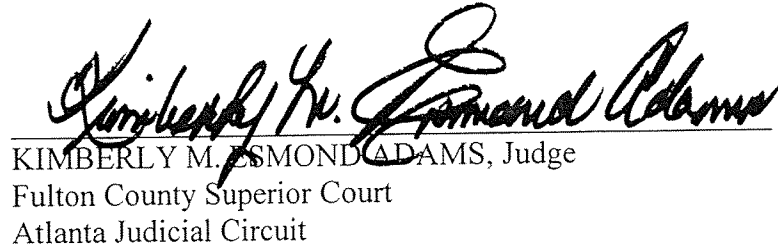 Kimberly M. Esmond Adams
KIMBERLY M. ESMOND ADAMS, Judge
Fulton County Superior Court
Atlanta Judicial Circuit